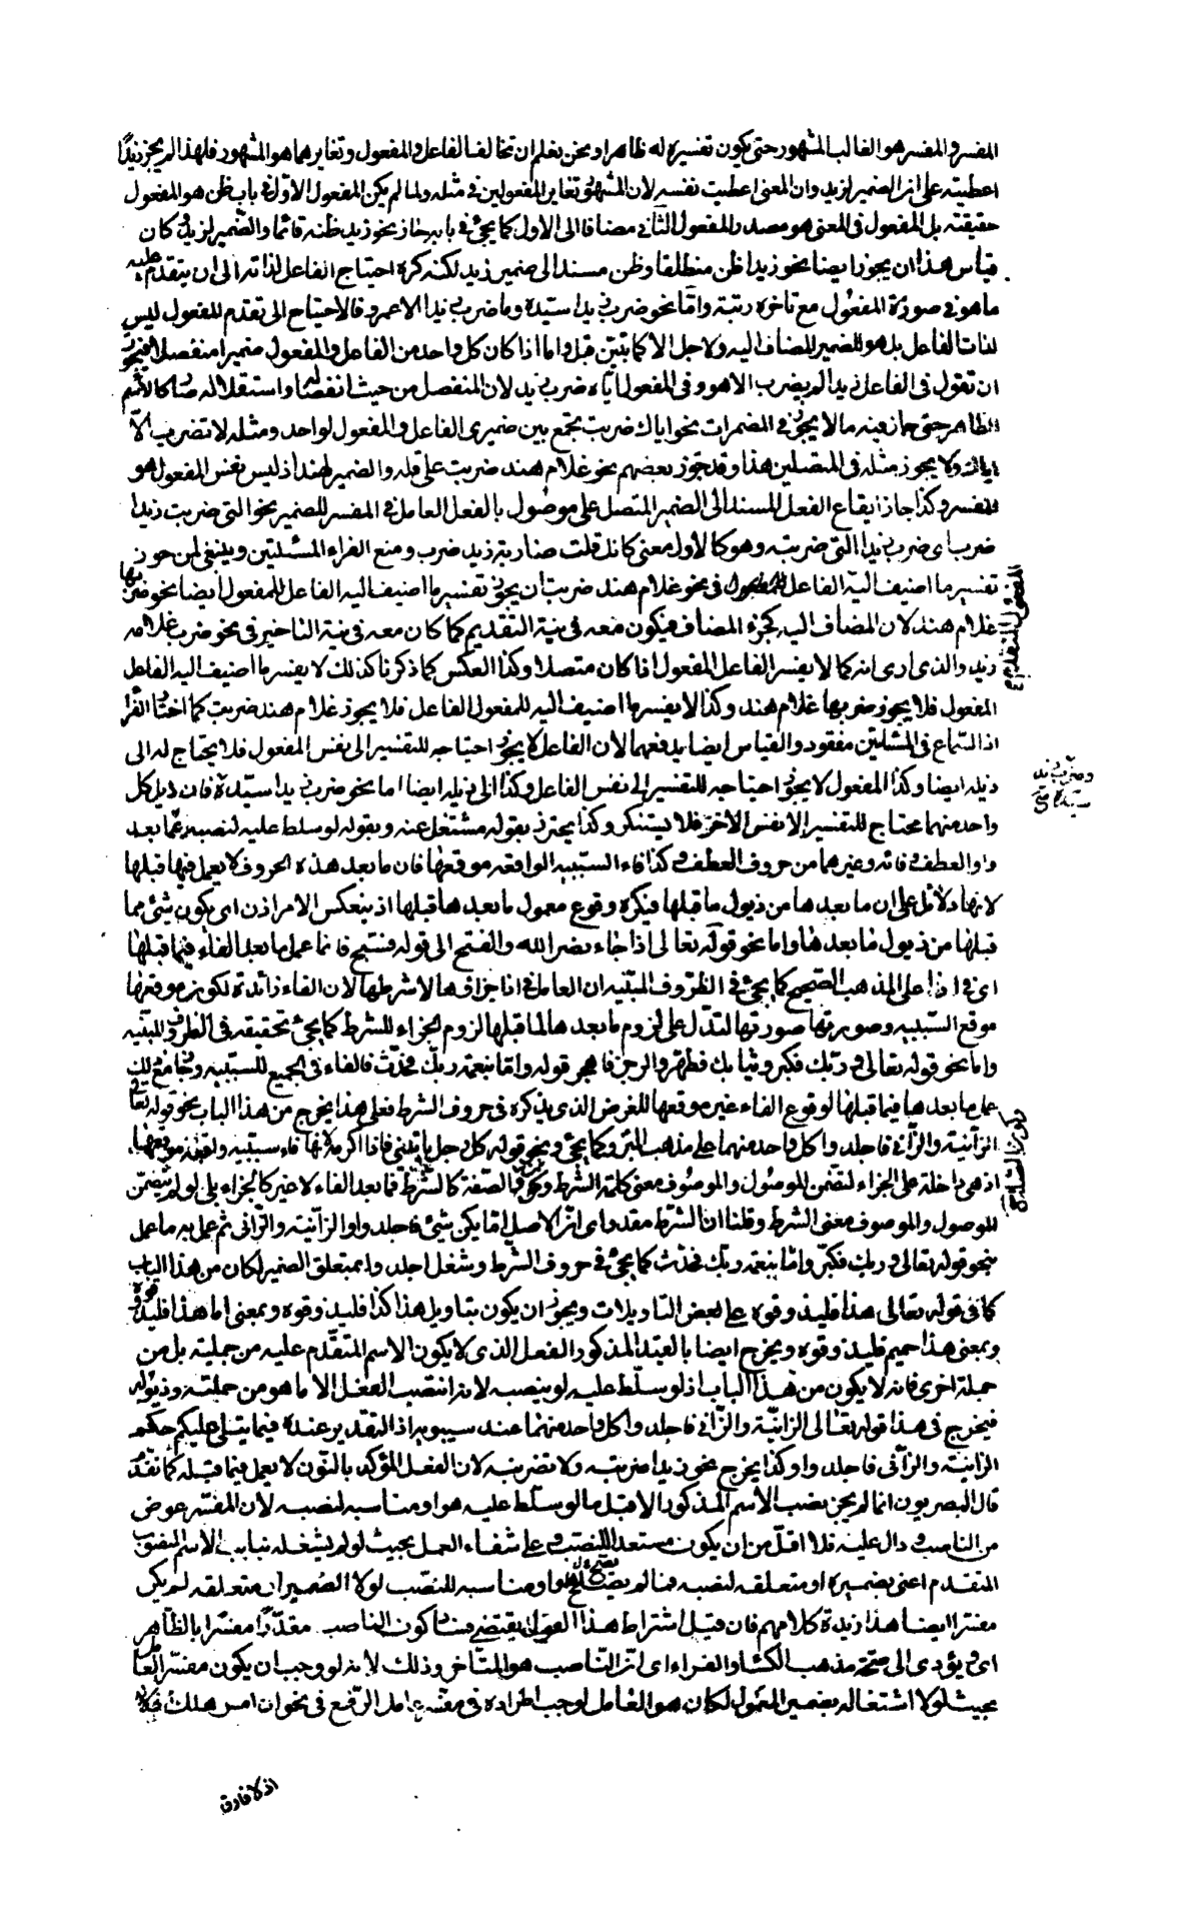 المفسر والمفسر هو الغالب المشهور حتى يكون تفسيره له ظاهرا ونحن نعلم ان تخالف الفاعل والمفعول وتغايرهما هو المشهور فلهذا لم يجز زيدًا
اعطيته على ان الضمير لزيد وان المعنى اعطيت نفسه لان المشهور تغاير المفعولين في مثله ولما لم يكن المفعول الاول في باب ظن هو المفعول
حقيقته بل المفعول في المعنى هو مصدر المفعول الثاني مضافا الى الاول كما يجئ في بابه جاز نحو زيد ظنه قائما والضمير لزيد كان
قياس هذا ان يجوز ايضا نحو زيدا ظن منطلقا وظن مسند الى ضمير زيد لكنه كره احتياج الفاعل لذاته الى ان يتقدم عليه
ما هو في صورة المفعول مع تاخره رتبة واما نحو ضرب زيدا سيده وما ضرب زيدا الا عمرو فالاحتياج الى تقدم المفعول ليس
لذات الفاعل بل هو للضمير المضاف اليه ولاجل الا كما تبين قبل واما اذا كان كل واحد من الفاعل والمفعول ضميرا منفصلا فيجوز
ان تقول في الفاعل زيدا لم يضرب الا هو وفي المفعول اياه ضرب زيد لان المنفصل من حيث انفصاله واستقلاله صار كالاسم
الظاهر حتى جاز فيه ما لا يجوز في المضمرات نحو اياك ضربت تجمع بين ضميرى الفاعل والمفعول لواحد ومثله لا تضرب الا
اياك ولا يجوز مثله في المتصلين هذا وقد جوز بعضهم نحو غلام هند ضربت على قلة والضمير لهند اذ ليس نفس المفعول هو
المفسر وكذا جاز ايقاع الفعل المسند الى الضمير المتصل على موصول بالفعل العامل في المفسر للضمير نحو التى ضربت زيدا
ضرب اى ضرب زيدا التى ضربته وهو كالاول معنى كانك قلت ضاربة زيد ضرب ومنع الفراء المسئلتين وينبغى لمن جوز
تفسير ما اضيف اليه الفاعل في نحو غلام هند ضربت ان يجوز تفسير ما اضيف اليه الفاعل للمفعول ايضا نحو ضربها
غلام هند لان المضاف اليه كجزء المضاف فيكون معه في نية التقديم كما كان معه في نية التاخير في نحو ضرب غلامه
زيد والذى ارى انه كما لا يفسر الفاعل المفعول اذا كان متصلا وكذا العكس كما ذكرنا كذلك لا يفسر ما اضيف اليه الفاعل
المفعول فلا يجوز ضربها غلام هند وكذا لا يفسر ما اضيف اليه المفعول الفاعل فلا يجوز غلام هند ضربت كما اختار الفرا
اذ السماع في المسئلتين مفقود والقياس ايضا يدفعهما لان الفاعل لا يجوز احتياجه للتفسير الى نفس المفعول فلا يحتاج له الى
ذيله ايضا وكذا المفعول لا يجوز احتياجه للتفسير الى نفس الفاعل وكذا الى ذيله ايضا اما نحو ضرب زيدا سيده فان ذيل كل
واحد منهما محتاج للتفسير الا نفس الآخر فلا يستنكر وكذا يحترز بقوله مشتغل عنه وبقوله لو سلط عليه لنصبه عما بعد
واو العطف وفائه وغيرهما من حروف العطف وكذا فاء السببيه الواقعه موقعها فان ما بعد هذه الحروف لا يعمل فيما قبلها
لانها دلائل على ان ما بعدها من ذيول ما قبلها فيكره وقوع معمول ما بعدها قبلها اذ ينعكس الامر اذن اى يكون شئ مما
قبلها من ذيول ما بعدها واما نحو قوله تعالى اذا جاء نصر الله والفتح الى قوله فسبح فانما عمل ما بعد الفاء فيما قبلها
اى في اذا على المذهب الصحيح كما يجئ في الظروف المبنيه ان العامل في اذا جزاؤها لا شرطها لان الفاء زائدة لكون موقعها
موقع السببيه وصورتها صورتها لتدل على لزوم ما بعدها لما قبلها لزوم الجزاء للشرط كما يجئ تحقيقه في الظروف المبنيه
واما نحو قوله تعالى وربك فكبر وثيابك فطهر والرجز فاهجر قوله واما بنعمة ربك فحدث فالفاء في الجميع للسببيه وانما جاز لك
عمل ما بعدها فيما قبلها لوقوع الفاء غير موقعها للغرض الذى يذكره في حروف الشرط فعلى هذا يخرج من هذا الباب نحو قوله تعالى
الزانية والزانى فاجلدوا كل واحد منهما على مذهب المبرد كما يجئ ونحو قوله كل رجل ياتينى فاذا اكرمه لانها فاء سببيه واقعة موقعها
اذ هى داخلة على الجزاء لتضمن الموصول والموصوف معنى كلمة الشرط وكون الصفة كالشرط فما بعد الفاء لا غير كالجزاء بلى لو لم يتضمن
الموصول والموصوف معنى الشرط وقلنا ان الشرط مقدر اى ان الاصل اما يكن شئ فاجلدوا الزانية والزانى ثم عمل به ما عمل
بنحو قوله تعالى وربك فكبر واما بنعمة ربك فحدث كما يجئ في حروف الشرط وشغل اجلدوا بمتعلق الضمير لكان من هذا الباب
كما في قوله تعالى هذا فليذوقوه على بعض التاويلات ويجوز ان يكون بتاويل هذا كذا فليذوقوه وبمعنى اما هذا فليذوقوه
وبمعنى هذا حميم فليذوقوه ويخرج ايضا بالقيد المذكور الفعل الذى لا يكون الاسم المتقدم عليه من جملته بل من
جملة اخرى فانه لا يكون من هذا الباب اذ لو سلط عليه لو ينصبه لانه انتصب الفعل الا ما هو من جملته وذيوله
فيخرج في هذا قوله تعالى الزانية والزانى فاجلدوا كل واحد منهما عند سيبويه اذ التقدير عنده فيما يتلى عليكم حكم
الزانية والزانى فاجلدوا وكذا يخرج نحو زيدا ضربته ولا تضربنه لان الفعل المؤكد بالنون لا يعمل فيما قبله كما تقدم
قال البصريون انما لم يجز نصب الاسم المذكور الا قبل ما لو سلط عليه هو او مناسبه لنصبه لان المفسر عوض
من الناصب ودال عليه فلا اقل من ان يكون مستعدا للنصب وعلى شفاء العمل بحيث لو لم يشغله نايب الاسم المنصوب
المتقدم اعنى بضميره او متعلقه لنصبه فما لم يصح نصبه او مناسبه للنصب لولا الضمير او متعلقه لم يكن
مفسرا ايضا هذا زبدة كلامهم فان قيل اشتراط هذا القول يقتضى فساد كون الناصب مقدرا مفسرا بالظاهر
اى ويؤدى الى صحة مذهب الكسائى والفراء اى ان الناصب هو المتاخر وذلك لانه لو وجب ان يكون مفسر العامل
بحيث لولا اشتغاله بضمير المعمول لكان هو العامل لوجب اطراده في مفسر عامل الرفع في نحو ان امرء هلك
المفعول المتقدم
وضرب زيد
اذ لا فارق